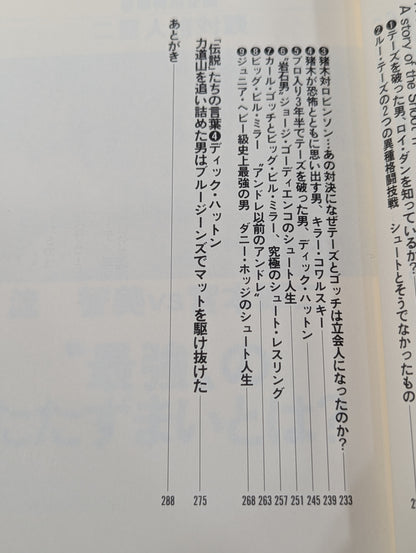 A story of the Shoot
❶テーズを破った男、ロイ・ダンを知っているか？
❷ルー・テーズの2つの異種格闘技戦　シュートとそうでなかったもの
❸猪木対ロビンソン…あの対決になぜテーズとゴッチは立会人になったのか？ 233
❹猪木が恐怖とともに思い出す男、キラー・コワルスキー 239
❺プロ入り3年半でテーズを破った男、ディック・ハットン 245
❻“岩石男”ジョージ・ゴーディエンコのシュート人生 251
❼カール・ゴッチとビッグ・ビル・ミラー、究極のシュート・レスリング 257
❽ビッグ・ビル・ミラー　“アンドレ以前のアンドレ” 263
❾ジュニア・ヘビー級史上最強の男　ダニー・ホッジのシュート人生 268
「伝説」たちの言葉❹ディック・ハットン
力道山を追い詰めた男はブルージーンズでマットを駆け抜けた 275
あとがき 288